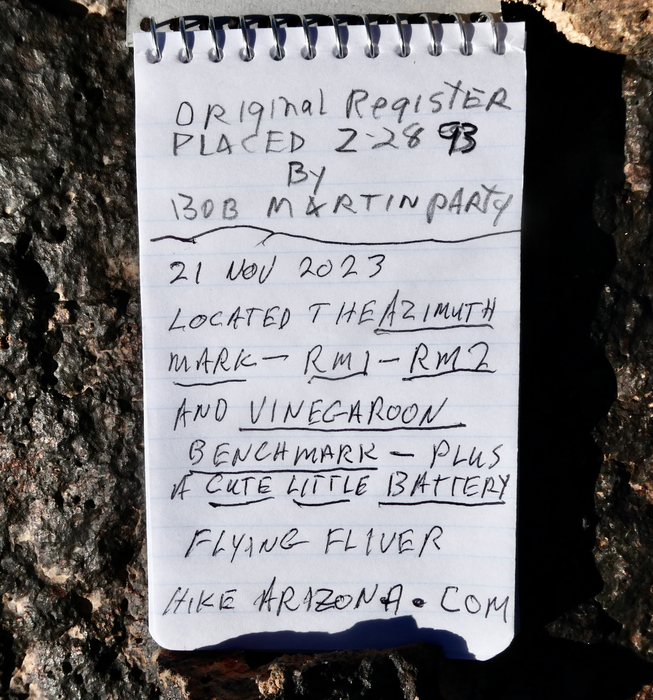 Original Register
PLACED 2-28 93
By
BOB MARTIN PARTY
21 NOV 2023
LOCATED THE AZIMUTH
MARK - RM1 - RM2
AND VINEGAROON
BENCHMARK - PLUS
A CUTE LITTLE BATTERY
FLYING FLIVER
HIKE ARIZONA.COM